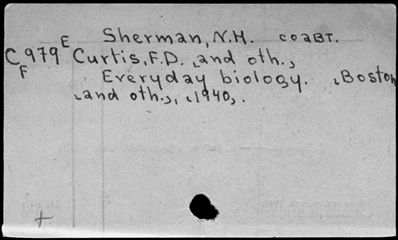 E Sherman, N.H. соавт.
C979 Curtis, F.D. and oth.,
F Everyday biology. Boston
and oth., 1940.